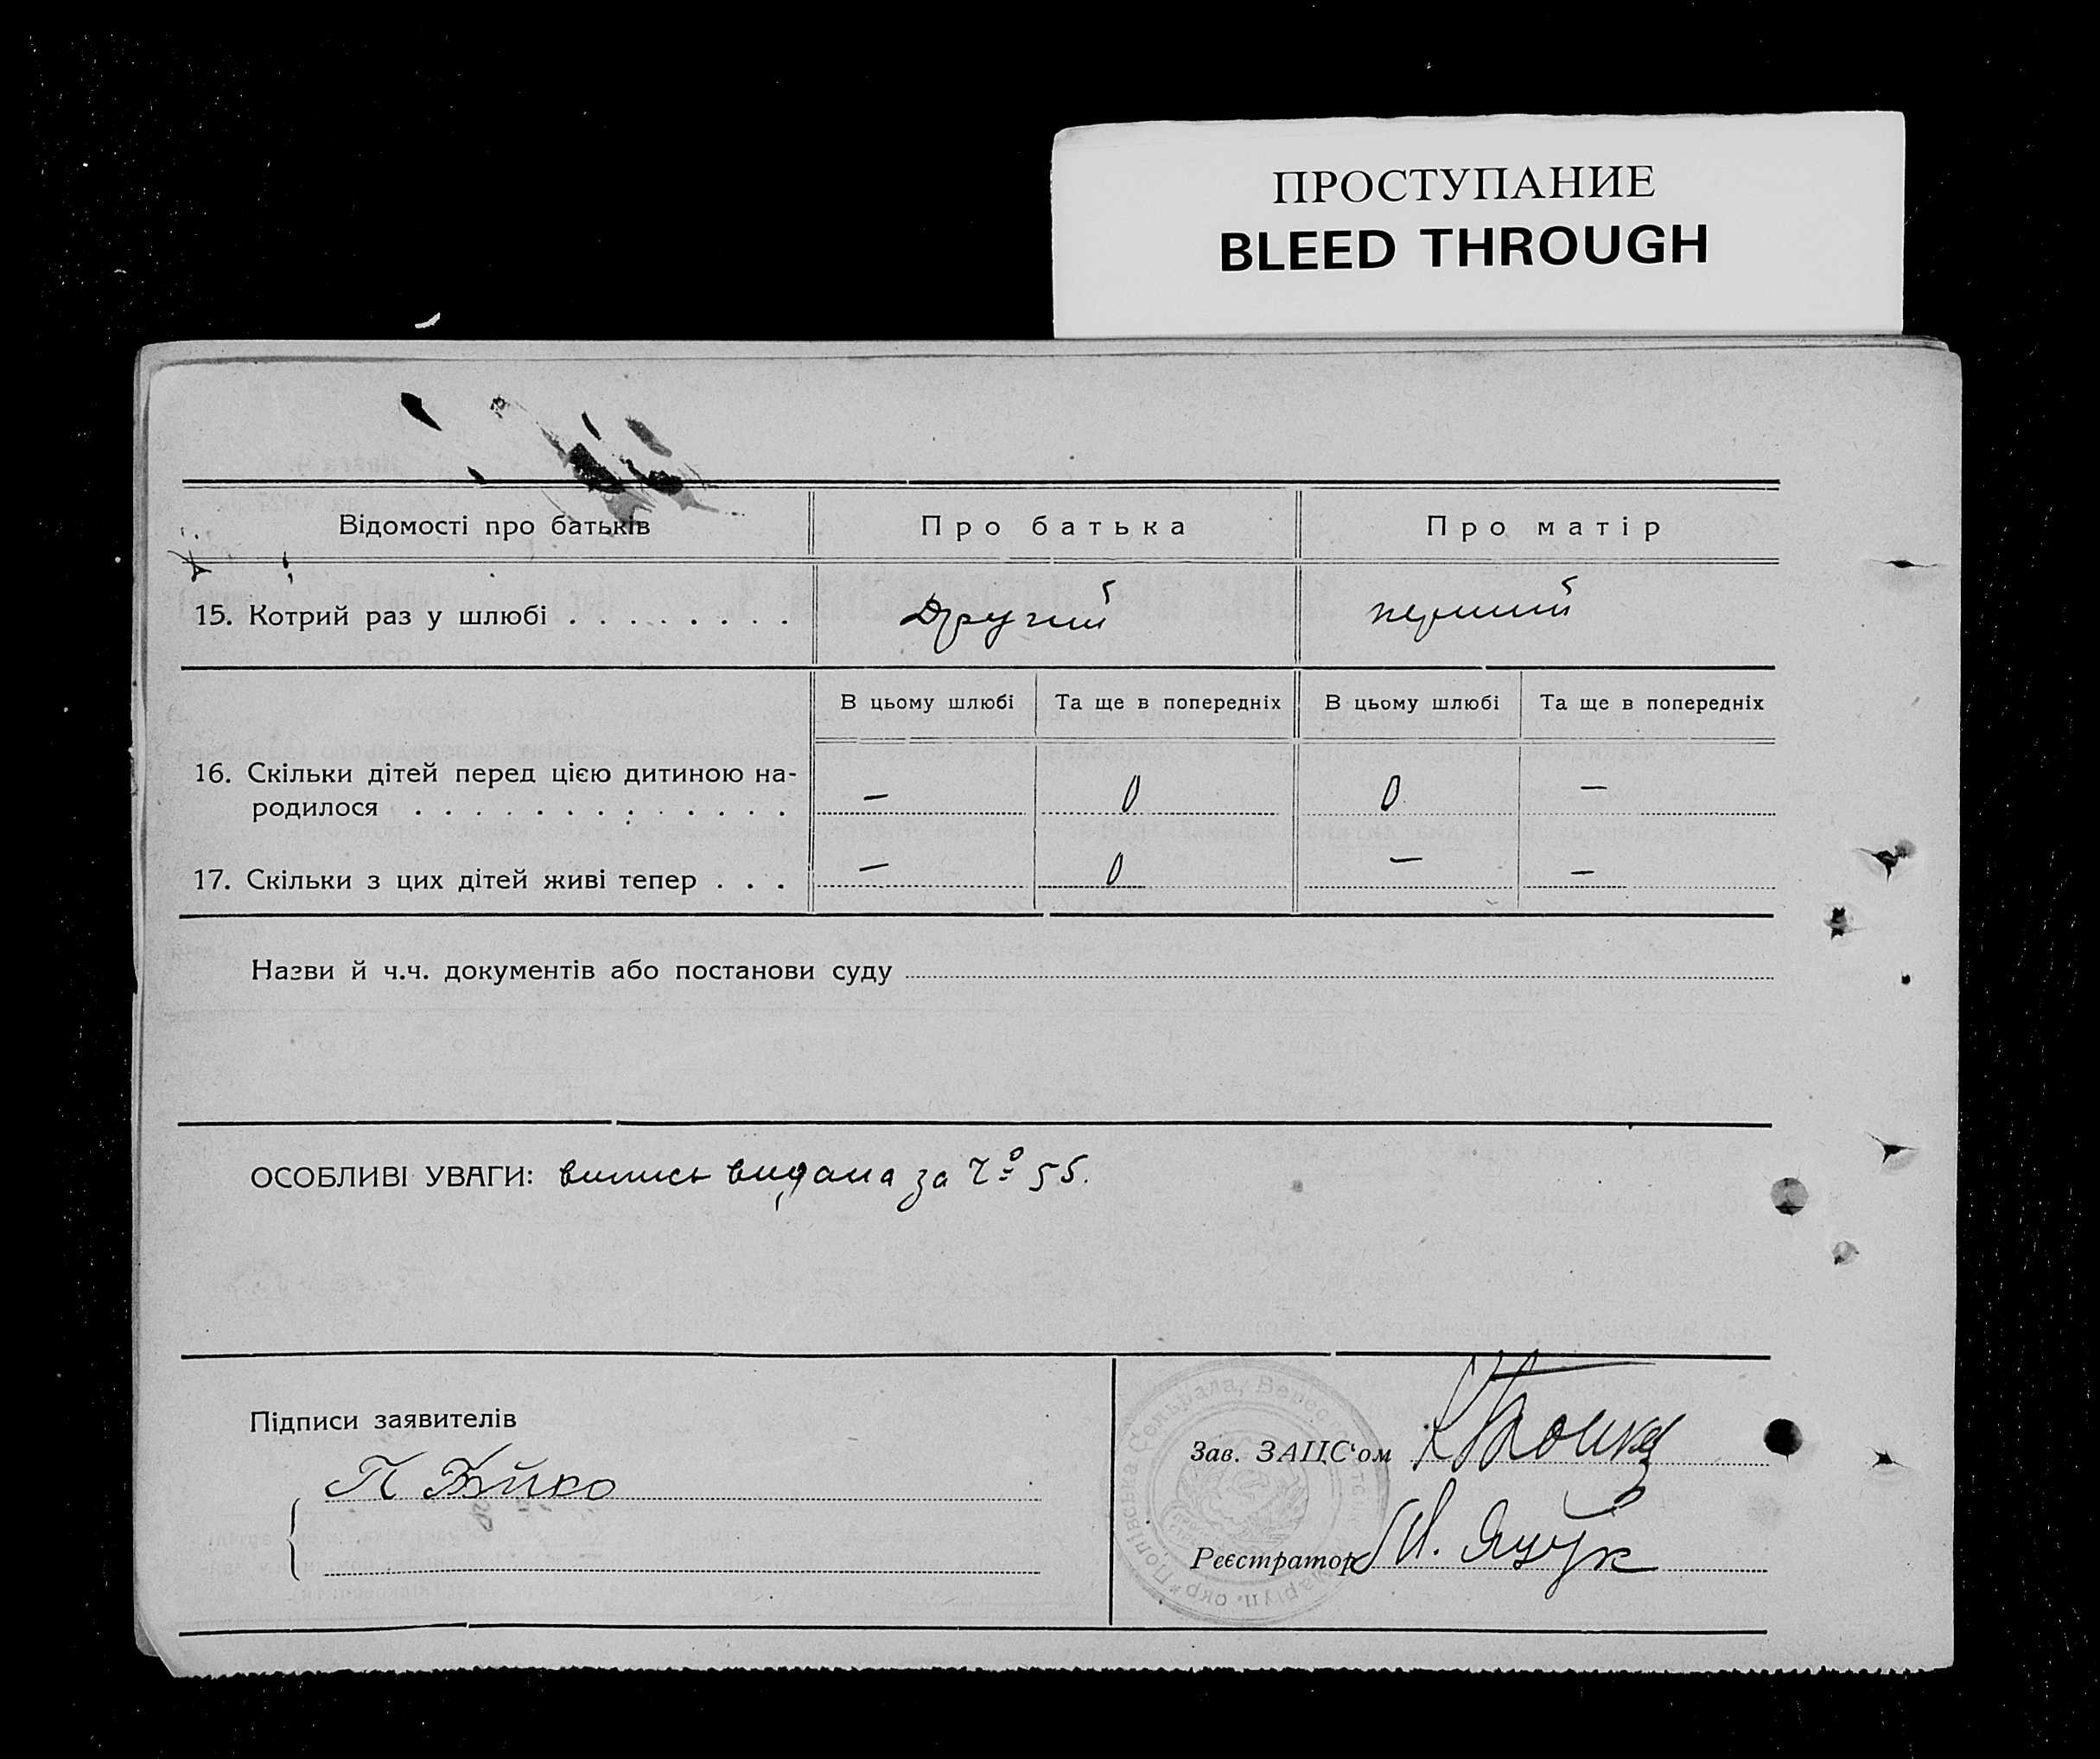 ПРОСТУПАНИЕ
BLEED THROUGH
Відомості про батьків
Про батька
Про матір
15. Котрий раз у шлюбі . . . . . . . .
Другий
перший
В цьому шлюбі
Та ще в попередніх
В цьому шлюбі
Та ще в попередніх
16. Скільки дітей перед цією дитиною на-
родилося . . . . . . . . . . . . .
— 0 0 —
17. Скільки з цих дітей живі тепер . . .
— 0 — —
Назви й ч.ч. документів або постанови суду
ОСОБЛИВІ УВАГИ: випись видана за Ч° 55.
Підписи заявителів
Зав. ЗАЦС'ом
П
Реєстратор
Ящук